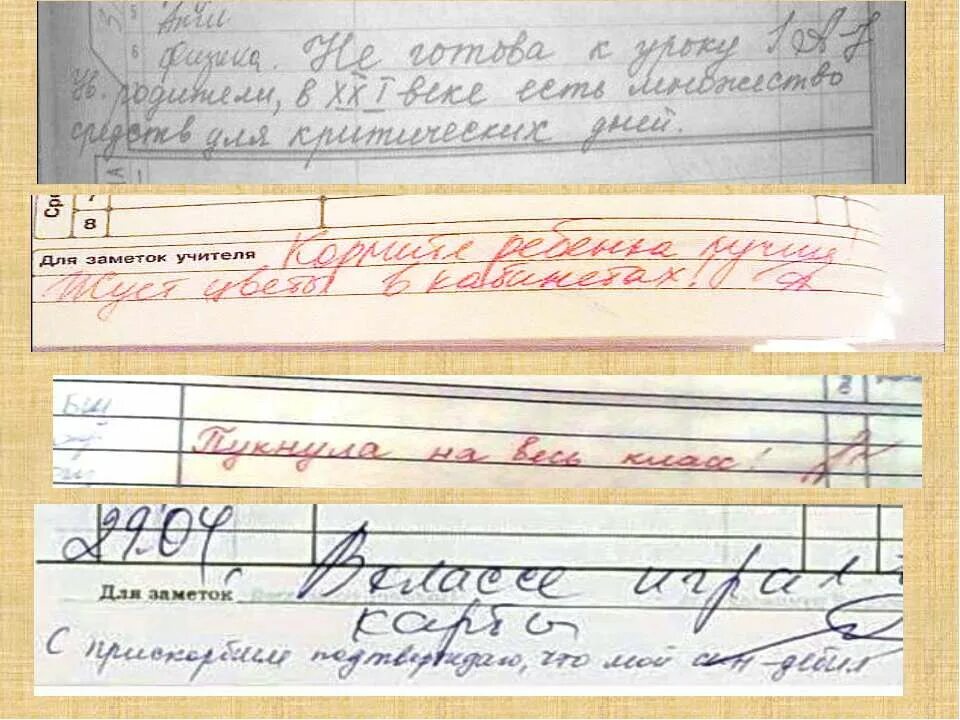 5 Англ
6 Физика. Не готова к уроку!
Ув. родители, в XXI веке есть множество
средств для критических дней.
Ср
7
8
Для заметок учителя Кормите ребенка лучше!
Жуёт цветы в кабинетах!
Пукнула на весь класс!
29.04
В классе играл в
Для заметок
карты
С прискорбием подтверждаю, что мой сын - дебил